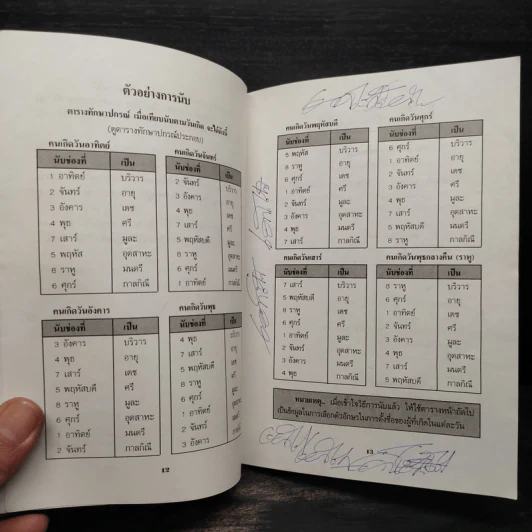 ตัวอย่างการนับ
ตารางทักษาปกรณ์ เมื่อเทียบนับตามวันเกิด จะได้ดังนี้
(ดูตารางทักษาปกรณ์ประกอบ)
คนเกิดวันอาทิตย์
นับช่องที่ เป็น
1 อาทิตย์ บริวาร
2 จันทร์ อายุ
3 อังคาร เดช
4 พุธ ศรี
7 เสาร์ มูละ
5 พฤหัส อุตสาหะ
8 ราหู มนตรี
6 ศุกร์ กาลกิณี
คนเกิดวันจันทร์
นับช่องที่ เป็น
2 จันทร์ บริวาร
3 อังคาร อายุ
4 พุธ เดช
7 เสาร์ ศรี
5 พฤหัสบดี มูละ
8 ราหู อุตสาหะ
6 ศุกร์ มนตรี
1 อาทิตย์ กาลกิณี
คนเกิดวันอังคาร
นับช่องที่ เป็น
3 อังคาร บริวาร
4 พุธ อายุ
7 เสาร์ เดช
5 พฤหัสบดี ศรี
8 ราหู มูละ
6 ศุกร์ อุตสาหะ
1 อาทิตย์ มนตรี
2 จันทร์ กาลกิณี
คนเกิดวันพุธ
นับช่องที่ เป็น
4 พุธ บริวาร
7 เสาร์ อายุ
5 พฤหัสบดี เดช
8 ราหู ศรี
6 ศุกร์ มูละ
1 อาทิตย์ อุตสาหะ
2 จันทร์ มนตรี
3 อังคาร กาลกิณี
12
คนเกิดวันพฤหัสบดี
นับช่องที่ เป็น
5 พฤหัส บริวาร
8 ราหู อายุ
6 ศุกร์ เดช
1 อาทิตย์ ศรี
2 จันทร์ มูละ
3 อังคาร อุตสาหะ
4 พุธ มนตรี
7 เสาร์ กาลกิณี
คนเกิดวันศุกร์
นับช่องที่ เป็น
6 ศุกร์ บริวาร
1 อาทิตย์ อายุ
2 จันทร์ เดช
3 อังคาร ศรี
4 พุธ มูละ
7 เสาร์ อุตสาหะ
5 พฤหัสบดี มนตรี
8 ราหู กาลกิณี
คนเกิดวันเสาร์
นับช่องที่ เป็น
7 เสาร์ บริวาร
5 พฤหัสบดี อายุ
8 ราหู เดช
6 ศุกร์ ศรี
1 อาทิตย์ มูละ
2 จันทร์ อุตสาหะ
3 อังคาร มนตรี
4 พุธ กาลกิณี
คนเกิดวันพุธกลางคืน (ราหู)
นับช่องที่ เป็น
8 ราหู บริวาร
6 ศุกร์ อายุ
1 อาทิตย์ เดช
2 จันทร์ ศรี
3 อังคาร มูละ
4 พุธ อุตสาหะ
7 เสาร์ มนตรี
5 พฤหัสบดี กาลกิณี
หมายเหตุ.. เมื่อเข้าใจวิธีการนับแล้ว ให้ใช้ตารางหน้าถัดไป
เป็นข้อมูลในการเลือกตัวอักษรในการตั้งชื่อของผู้ที่เกิดในแต่ละวัน
13